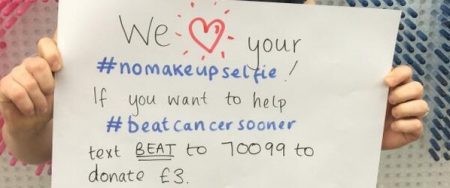 We ❤ your
#nomakeupselfie!
If you want to help
#beatcancersooner
text BEAT to 70099 to
donate £3.